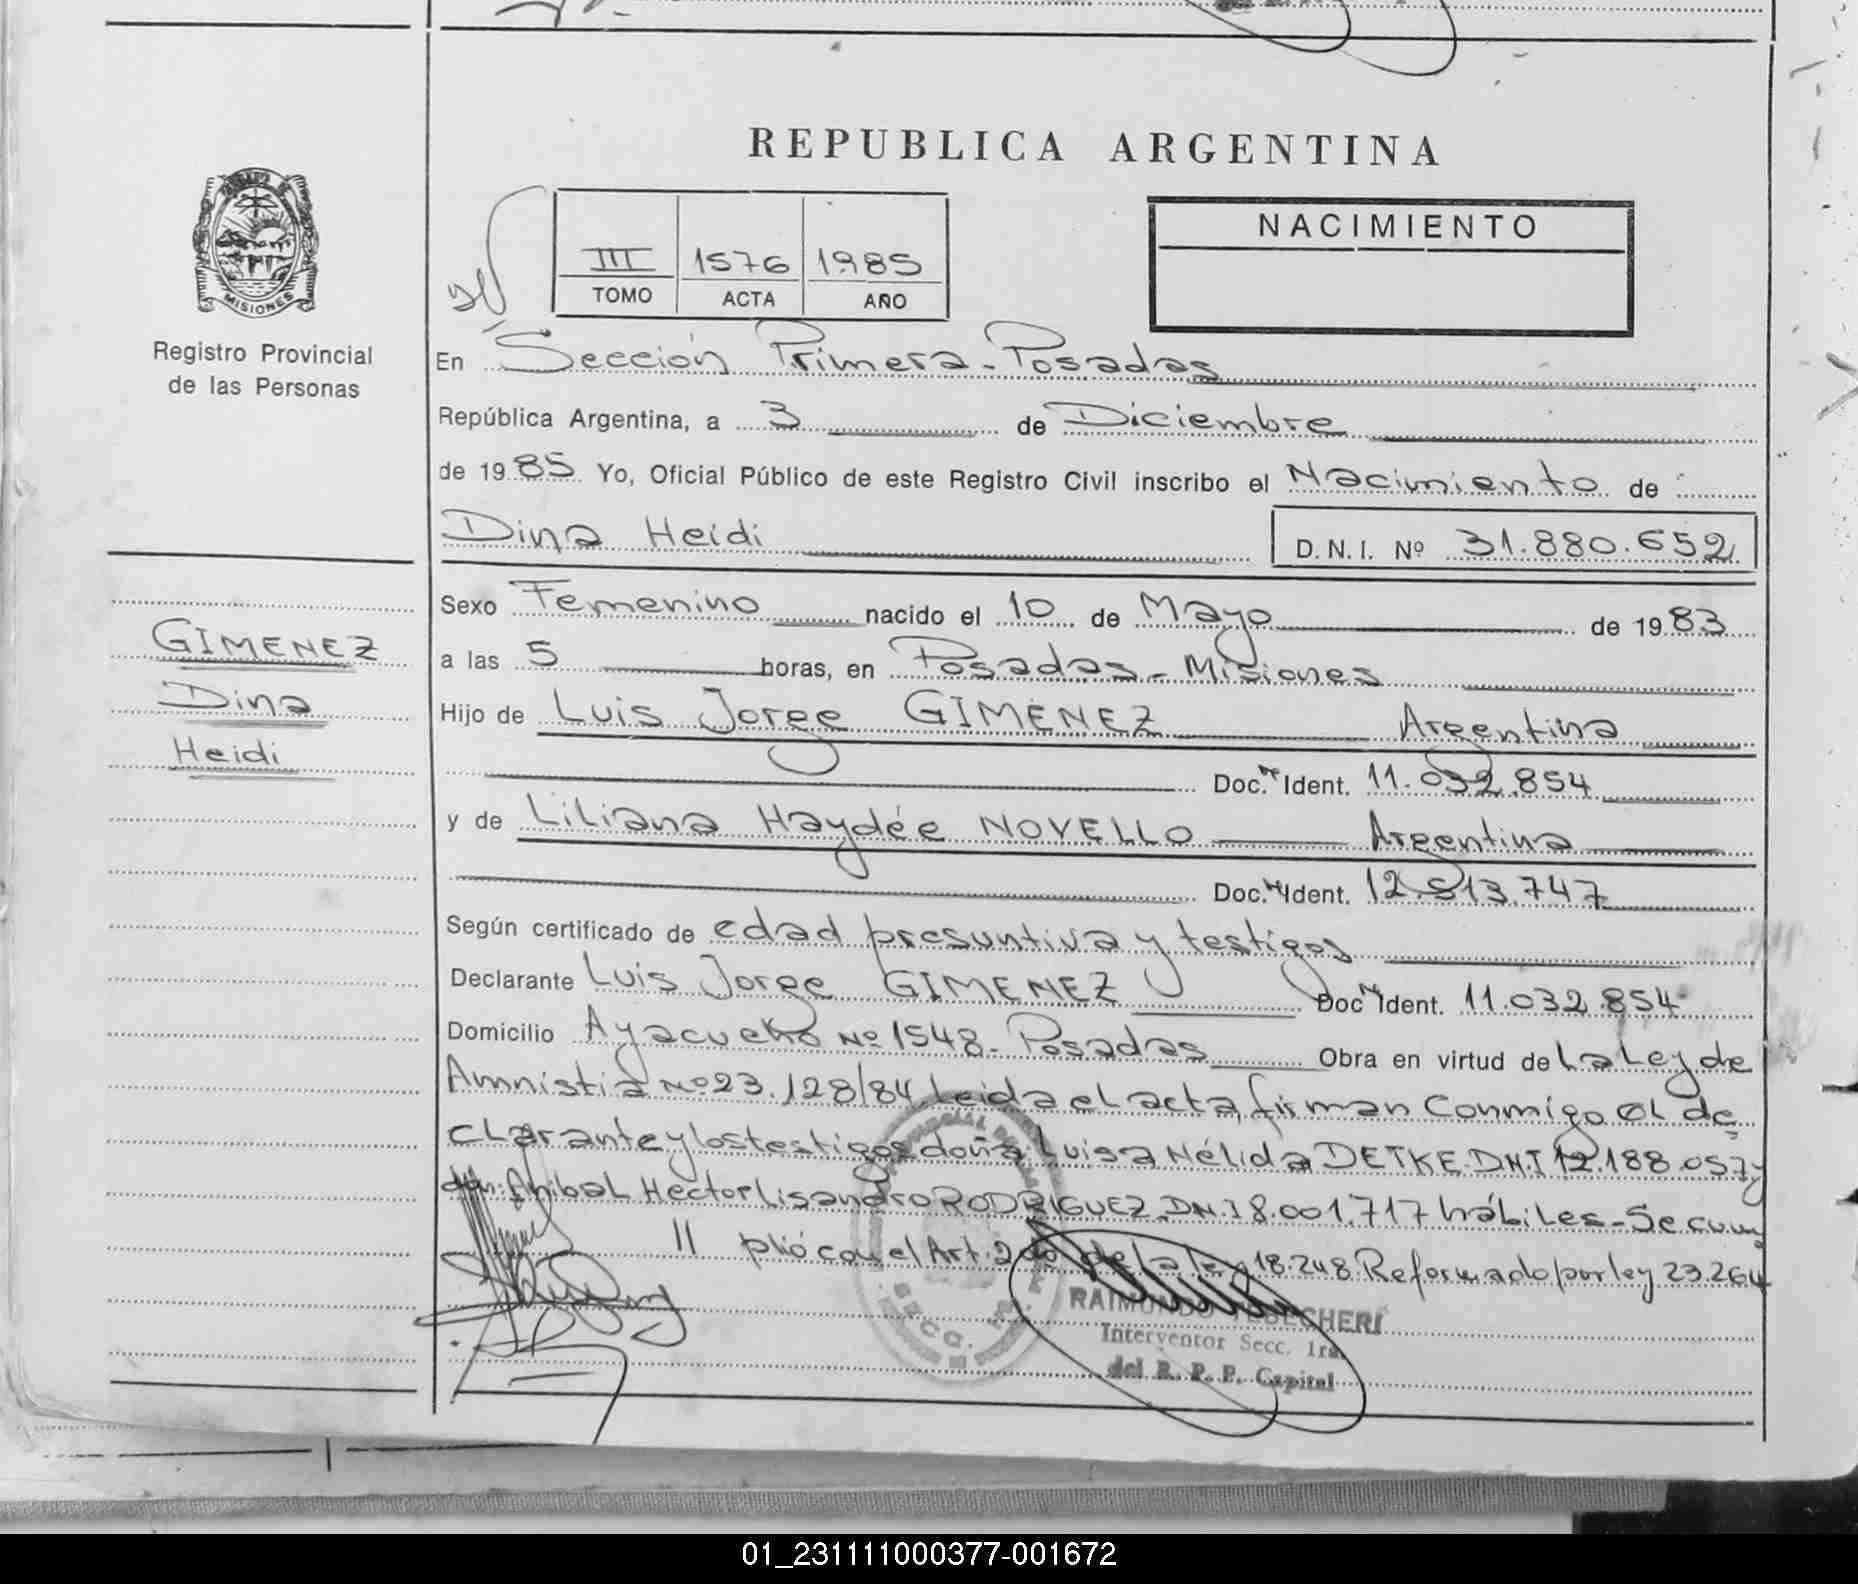 REPUBLICA ARGENTINA
MISIONES
Registro Provincial
de las Personas
III 1576 1985
TOMO ACTA AÑO
NACIMIENTO
En Sección Primera - Posadas
República Argentina, a 3 de Diciembre
de 1985 Yo, Oficial Público de este Registro Civil inscribo el Nacimiento de
Dina Heidi D.N.I. Nº 31.880.652
Sexo Femenino nacido el 10 de Mayo de 1983
GIMENEZ
Dina
Heidi
a las 5 horas, en Posadas - Misiones
Hijo de Luis Jorge GIMENEZ Argentina
Doc. Ident. 11.032.854
y de Liliana Haydée NOVELLO Argentina
Doc. Ident. 12.813.747
Según certificado de edad presuntiva y testigos
Declarante Luis Jorge GIMENEZ Doc. Ident. 11.032.854
Domicilio Ayacucho Nº 1548 - Posadas Obra en virtud de la Ley de
Amnistia Nº 23.128/84. Leida el acta, firman conmigo el de
clarante y los testigos doña Luisa Nélida DETKE D.N.I 12.188.057 y
don Anibal Hector Lisandro RODRIGUEZ. D.N.I 8.001.717 hábiles - Se cum
// plió con el Art. 2do de la ley 18.248 Reformado por ley 23.264
RAIMUNDO
Interventor Secc. 1ra.
del R. P. P. Capital
01_231111000377-001672